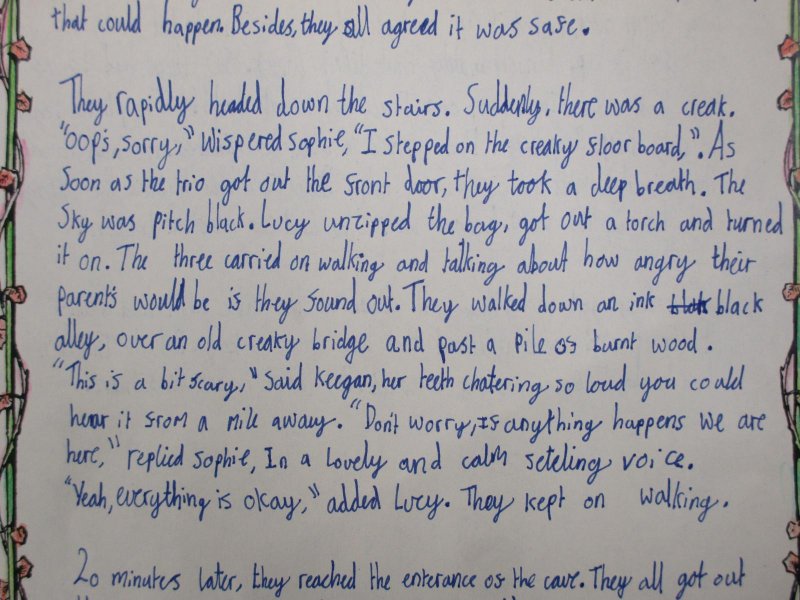 that could happen. Besides, they all agreed it was safe.
They rapidly headed down the stairs. Suddenly, there was a creak.
"Oop's, sorry," Wispered Sophie, "I stepped on the creaky floor board,". As
Soon as the trio got out the front door, they took a deep breath. The
Sky was pitch black. Lucy unzipped the bag, got out a torch and turned
it on. The three carried on walking and talking about how angry their
parent's would be if they found out. They walked down an ink black
alley, over an old creaky bridge and past a pile of burnt wood.
"This is a bit scary," said Keegan, her teeth chatering so loud you could
hear it from a mile away. "Don't worry, if anything happens we are
here," replied Sophie, In a lovely and calm seteling voice.
"Yeah, everything is okay," added Lucy. They kept on walking.
20 minutes later, they reached the enterance of the cave. They all got out